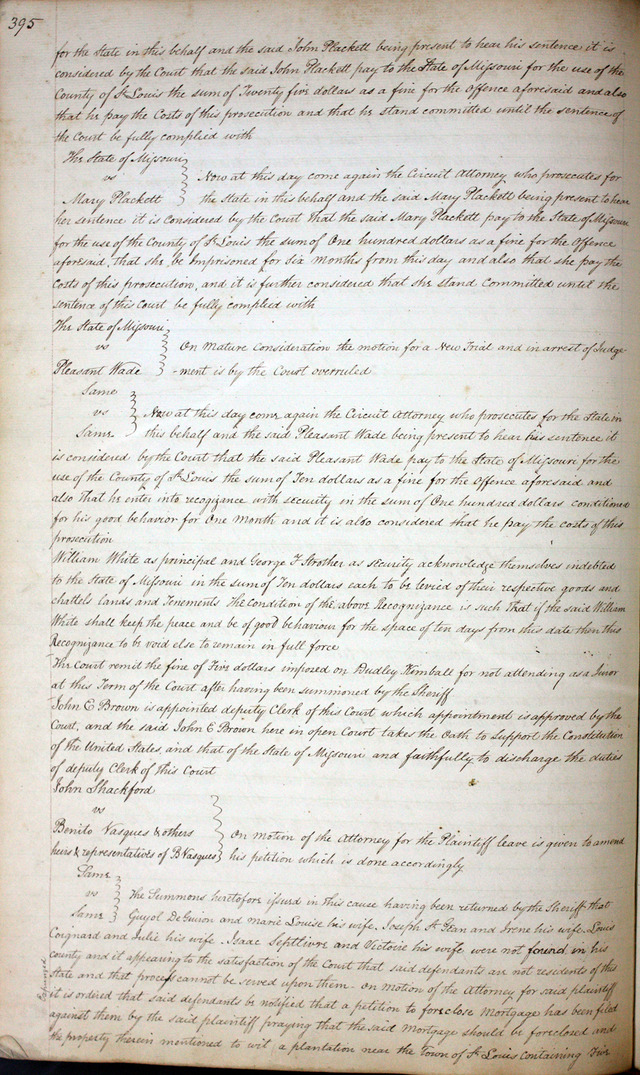 395
for the State in this behalf and the said John Plackett being present to hear his sentence it is
considered by the Court that the said John Plackett pay to the State of Missouri for the use of the
County of St Louis the sum of Twenty five dollars as a fine for the Offence aforesaid and also
that he pay the Costs of this prosecution and that he stand committed until the sentence of
the Court be fully complied with
The State of Missouri
vs
Mary Plackett
Now at this day come again the Circuit Attorney who prosecutes for
the State in this behalf and the said Mary Plackett being present to hear
her sentence it is considered by the Court that the said Mary Plackett pay to the State of Missouri
for the use of the County of St Louis the sum of One hundred dollars as a fine for the Offence
aforesaid, that she be imprisoned for Six Months from this day and also that she pay the
Costs of this prosecution, and it is further considered that she stand Committed until the
sentence of this Court be fully complied with
The State of Missouri
vs
Pleasant Wade
On Mature Consideration the motion for a New Trial and in arrest of Judge-
-ment is by the Court overruled
Same
vs
Same
Now at this day come again the Circuit Attorney who prosecutes for the State in
this behalf and the said Pleasant Wade being present to hear his sentence it
is considered by the Court that the said Pleasant Wade pay to the State of Missouri for the
use of the County of St Louis the sum of Ten dollars as a fine for the offence aforesaid and
also that he enter into recogizance with security in the sum of One hundred dollars conditioned
for his good behavior for One Month and it is also considered that he pay the costs of this
prosecution
William White as principal and George F Strother as security acknowledge themselves indebted
to the State of Missouri in the sum of Ten dollars each to be levied of their respective goods and
chattels lands and Tenements The Condition of the above Recognizance is such That if the said William
White shall keep the peace and be of good behaviour for the space of ten days from this date then this
Recognizance to be void else to remain in full force
The Court remit the fine of Five dollars imposed on Dudley Kimball for not attending as a Juror
at this Term of the Court after having been summioned by the Sheriff
John E Brown is appointed deputy Clerk of this Court which appointment is approved by the
Court, and the said John E Brown here in open Court takes the Oath to Support the Constitution
of the United States, and that of the State of Missouri and faithfully to discharge the duties
of deputy Clerk of this Court
John Shackford
vs
Benito Vasques & others
heirs & representatives of B Vasques
On motion of the Attorney for the Plaintiff leave is given to amend
his petition which is done accordingly
Same
vs
Same
The Summons heretofore issued in this cause having been returned by the Sheriff that
Guyol De Guion and Marie Louise his wife, Joseph St Jean and Irene his wife Louis
Coignard and Julie his wife Isaac Septlivre and Victoire his wife were not found in his
county and it appearing to the satisfaction of the Court that said defendants are not residents of this
State and that process cannot be served upon them - On motion of the Attorney for said plaintiff
it is ordered that said defendants be notified that a petition to foreclose Mortgage has been filed
against them by the said plaintiff praying that the said Mortgage should be foreclosed and
the property therein mentioned to wit, a plantation near the town of St Louis containing Five